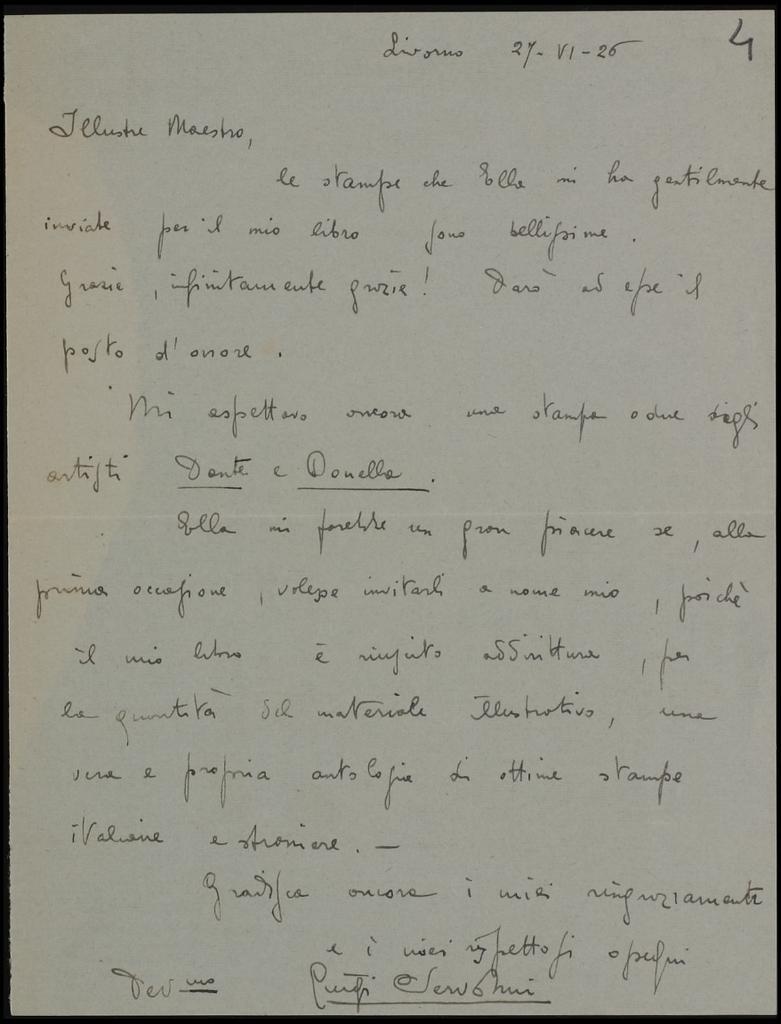 Livorno 27-VI-26
4
Illustre Maestro,
le stampe che Ella mi ha gentilmente
inviate per il mio libro sono bellissime.
Grazie, infinitamente grazie! Darò ad esse il
posto d'onore.
Mi aspettavo ancora una stampa o due degli
artisti Dante e Donella.
Ella mi farebbe un gran piacere se, alla
prima occasione, volesse invitarli a nome mio, poichè
il mio libro è riuscito addirittura, per
la quantità del materiale illustrativo, una
vera e propria antologia di ottime stampe
italiane e straniere. —
Gradisca ancora i miei ringraziamenti
e i miei rispettosi ossequi
Dev mo Luigi Servolini